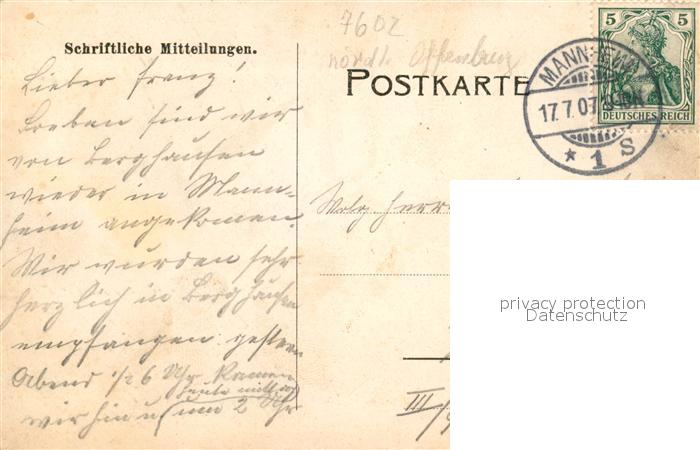 7602
nördl. Offenburg
Schriftliche Mitteilungen.
POSTKARTE
5 5
DEUTSCHES REICH
MANNHEIM
17.7.07
* 1 S
Lieber Franz!
Soeben sind wir
von Berghausen
wieder in Mann-
heim angekomen.
Wir wurden sehr
herzlich in Berghausen
empfangen gestern
Abend 1/2 6 Uhr kamen
wir hin u um 2 Uhr
heute mittag
Herrn
III/
privacy protection
Datenschutz